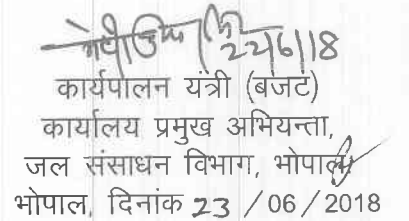 22/6/18
कार्यपालन यंत्री (बजट)
कार्यालय प्रमुख अभियन्ता,
जल संसाधन विभाग, भोपाल
भोपाल, दिनांक 23 / 06 / 2018